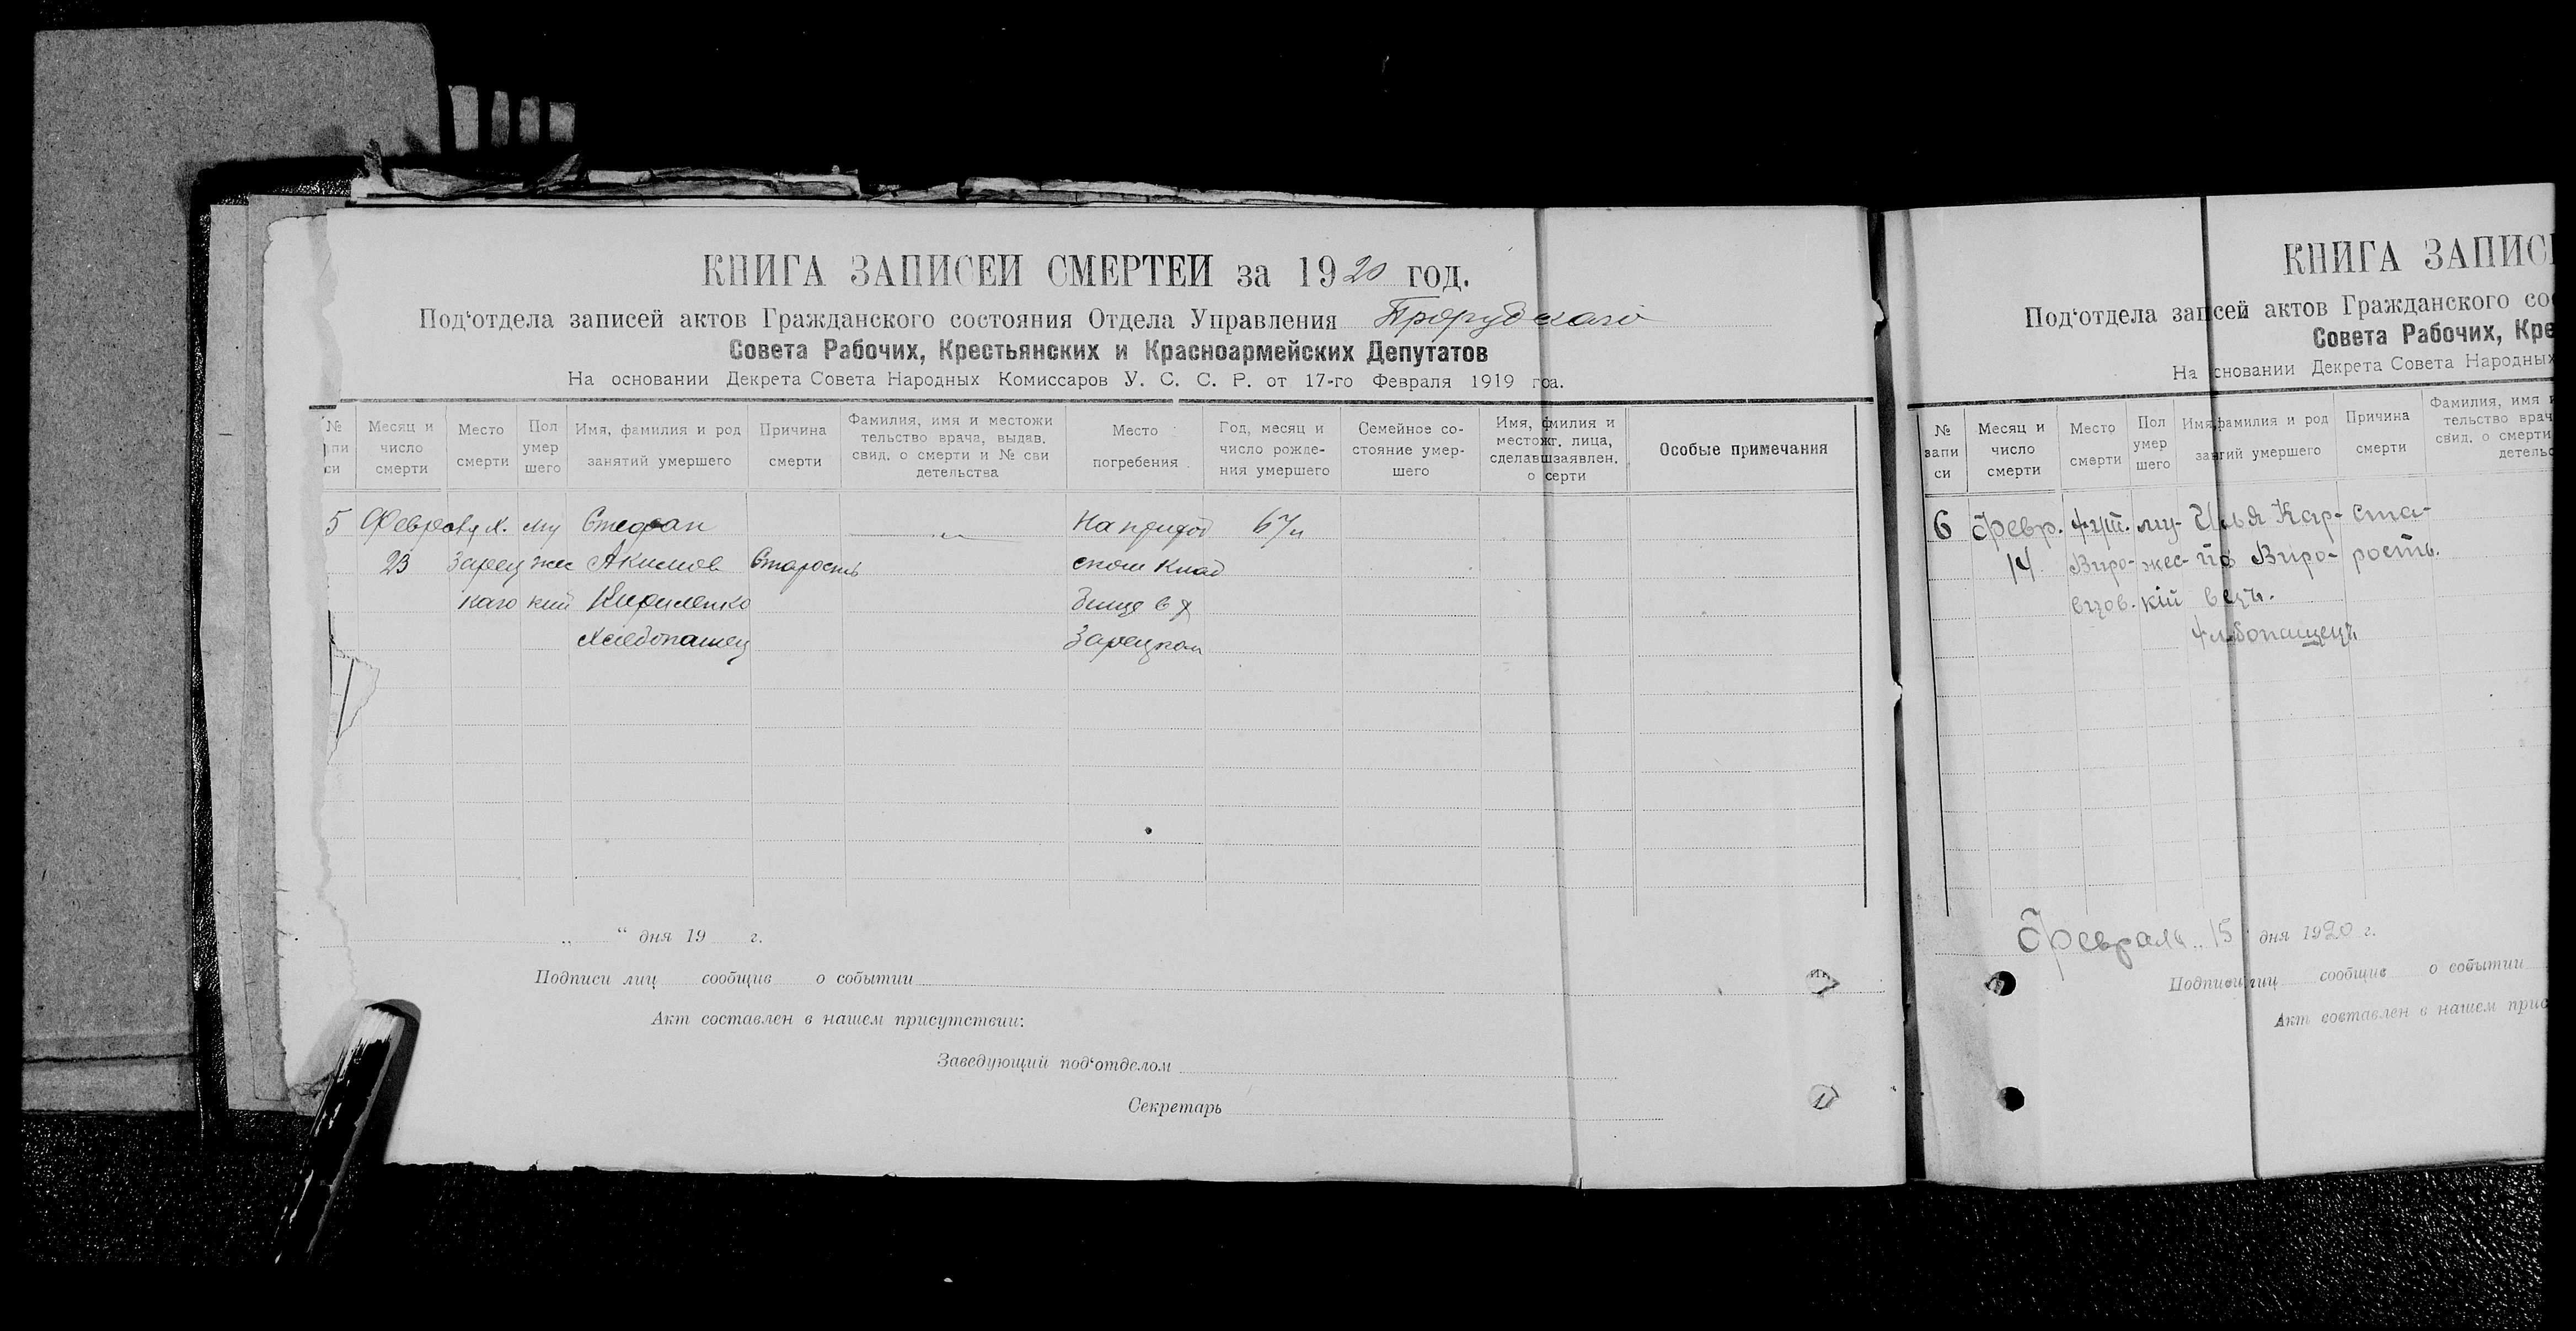 КНИГА ЗАПИСЕЙ СМЕРТЕЙ за 1920 год.
Под‘отдела записей актов Гражданского состояния Отдела Управления Прорубскаго
Совета Рабочих, Крестьянских и Красноармейских Депутатов
На основании Декрета Совета Народных Комиссаров У. С. С. Р. от 17-го Февраля 1919 гоа.
№ запи си
Месяц и число смерти
Место смерти
Пол умер шего
Имя, фамилия и род занятий умершего
Причина смерти
Фамилия, имя и местожи тельство врача, выдав. свид. о смерти и № сви детельства
Место погребения
Год, месяц и число рожде- ния умершего
Семейное со- стояние умер- шего
Имя, фмилия и местожг. лица, сделавшзаявлен. о серти
Особые примечания
5 Февр х. му Стефан На приход 67 л
23 Зарец жес Акимов Старость ском Клад
каго кий Кириленко бище в х
Хлебопашец Зарецком
„ “ дня 19 г.
Подписи лиц сообщив о событии
Акт составлен в нашем присутствии:
Заведующий под‘отделом
Секретарь
КНИГА ЗАПИСЕ
Под‘отдела записей актов Гражданского со
Совета Рабочих, Кре
На сновании Декрета Совета Народных
№ запи си
Месяц и число смерти
Место смерти
Пол умер шего
Имя, фамилия и род занятий умершего
Причина смерти
Фамилия, имя и тельство врач свид. о смерти детельс
6 Февр. хут. му- Илья Кар- Ста-
14 Виро- жес- пов Виро- рость.
вцов. кій вецъ.
Хлѣбопащецъ
Февраля „15 дня 1920 г.
Подписи лиц сообщив о событии
Акт составлен в нашем прис